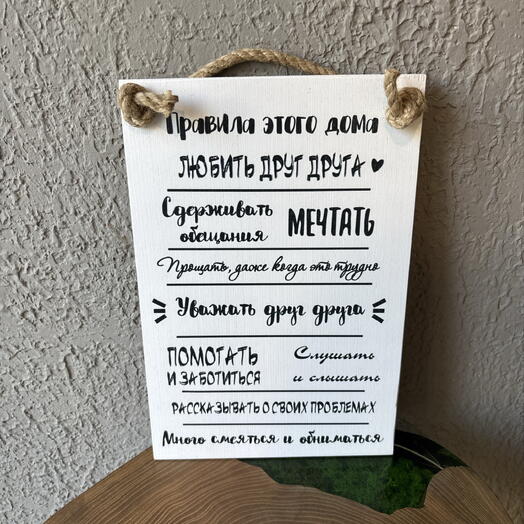 Правила этого дома
ЛЮБИТЬ ДРУГ ДРУГА
Сдерживать обещания
МЕЧТАТЬ
Прощать, даже когда это трудно
Уважать друг друга
ПОМОГАТЬ И ЗАБОТИТЬСЯ
Слушать и слышать
РАССКАЗЫВАТЬ О СВОИХ ПРОБЛЕМАХ
Много смеяться и обниматься